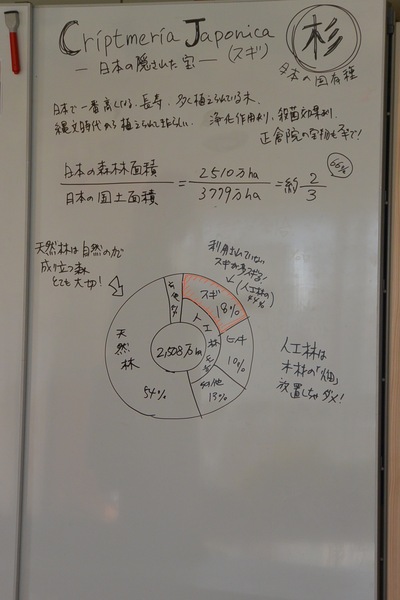 Criptmeria Japonica
(スギ)
― 日本の隠された宝 ―
杉
日本の固有種
日本で一番高くなる、長寿、多く植えられている木。
縄文時代から植えられて
浄化作用あり、殺菌効果あり、
正倉院の宝物も
日本の森林面積 = 2510万ha = 約 2
日本の国土面積 3779万ha 3
66%
天然林は自然の力で
成り立つ森
とても大切!
利用されていない
スギが多すぎる!
(人工林の
44%)
スギ
18%
ヒノキ
10%
その他
13%
人工林
天然林
54%
その他
2,508万ha
人工林は
木材の「畑」
放置しちゃダメ!